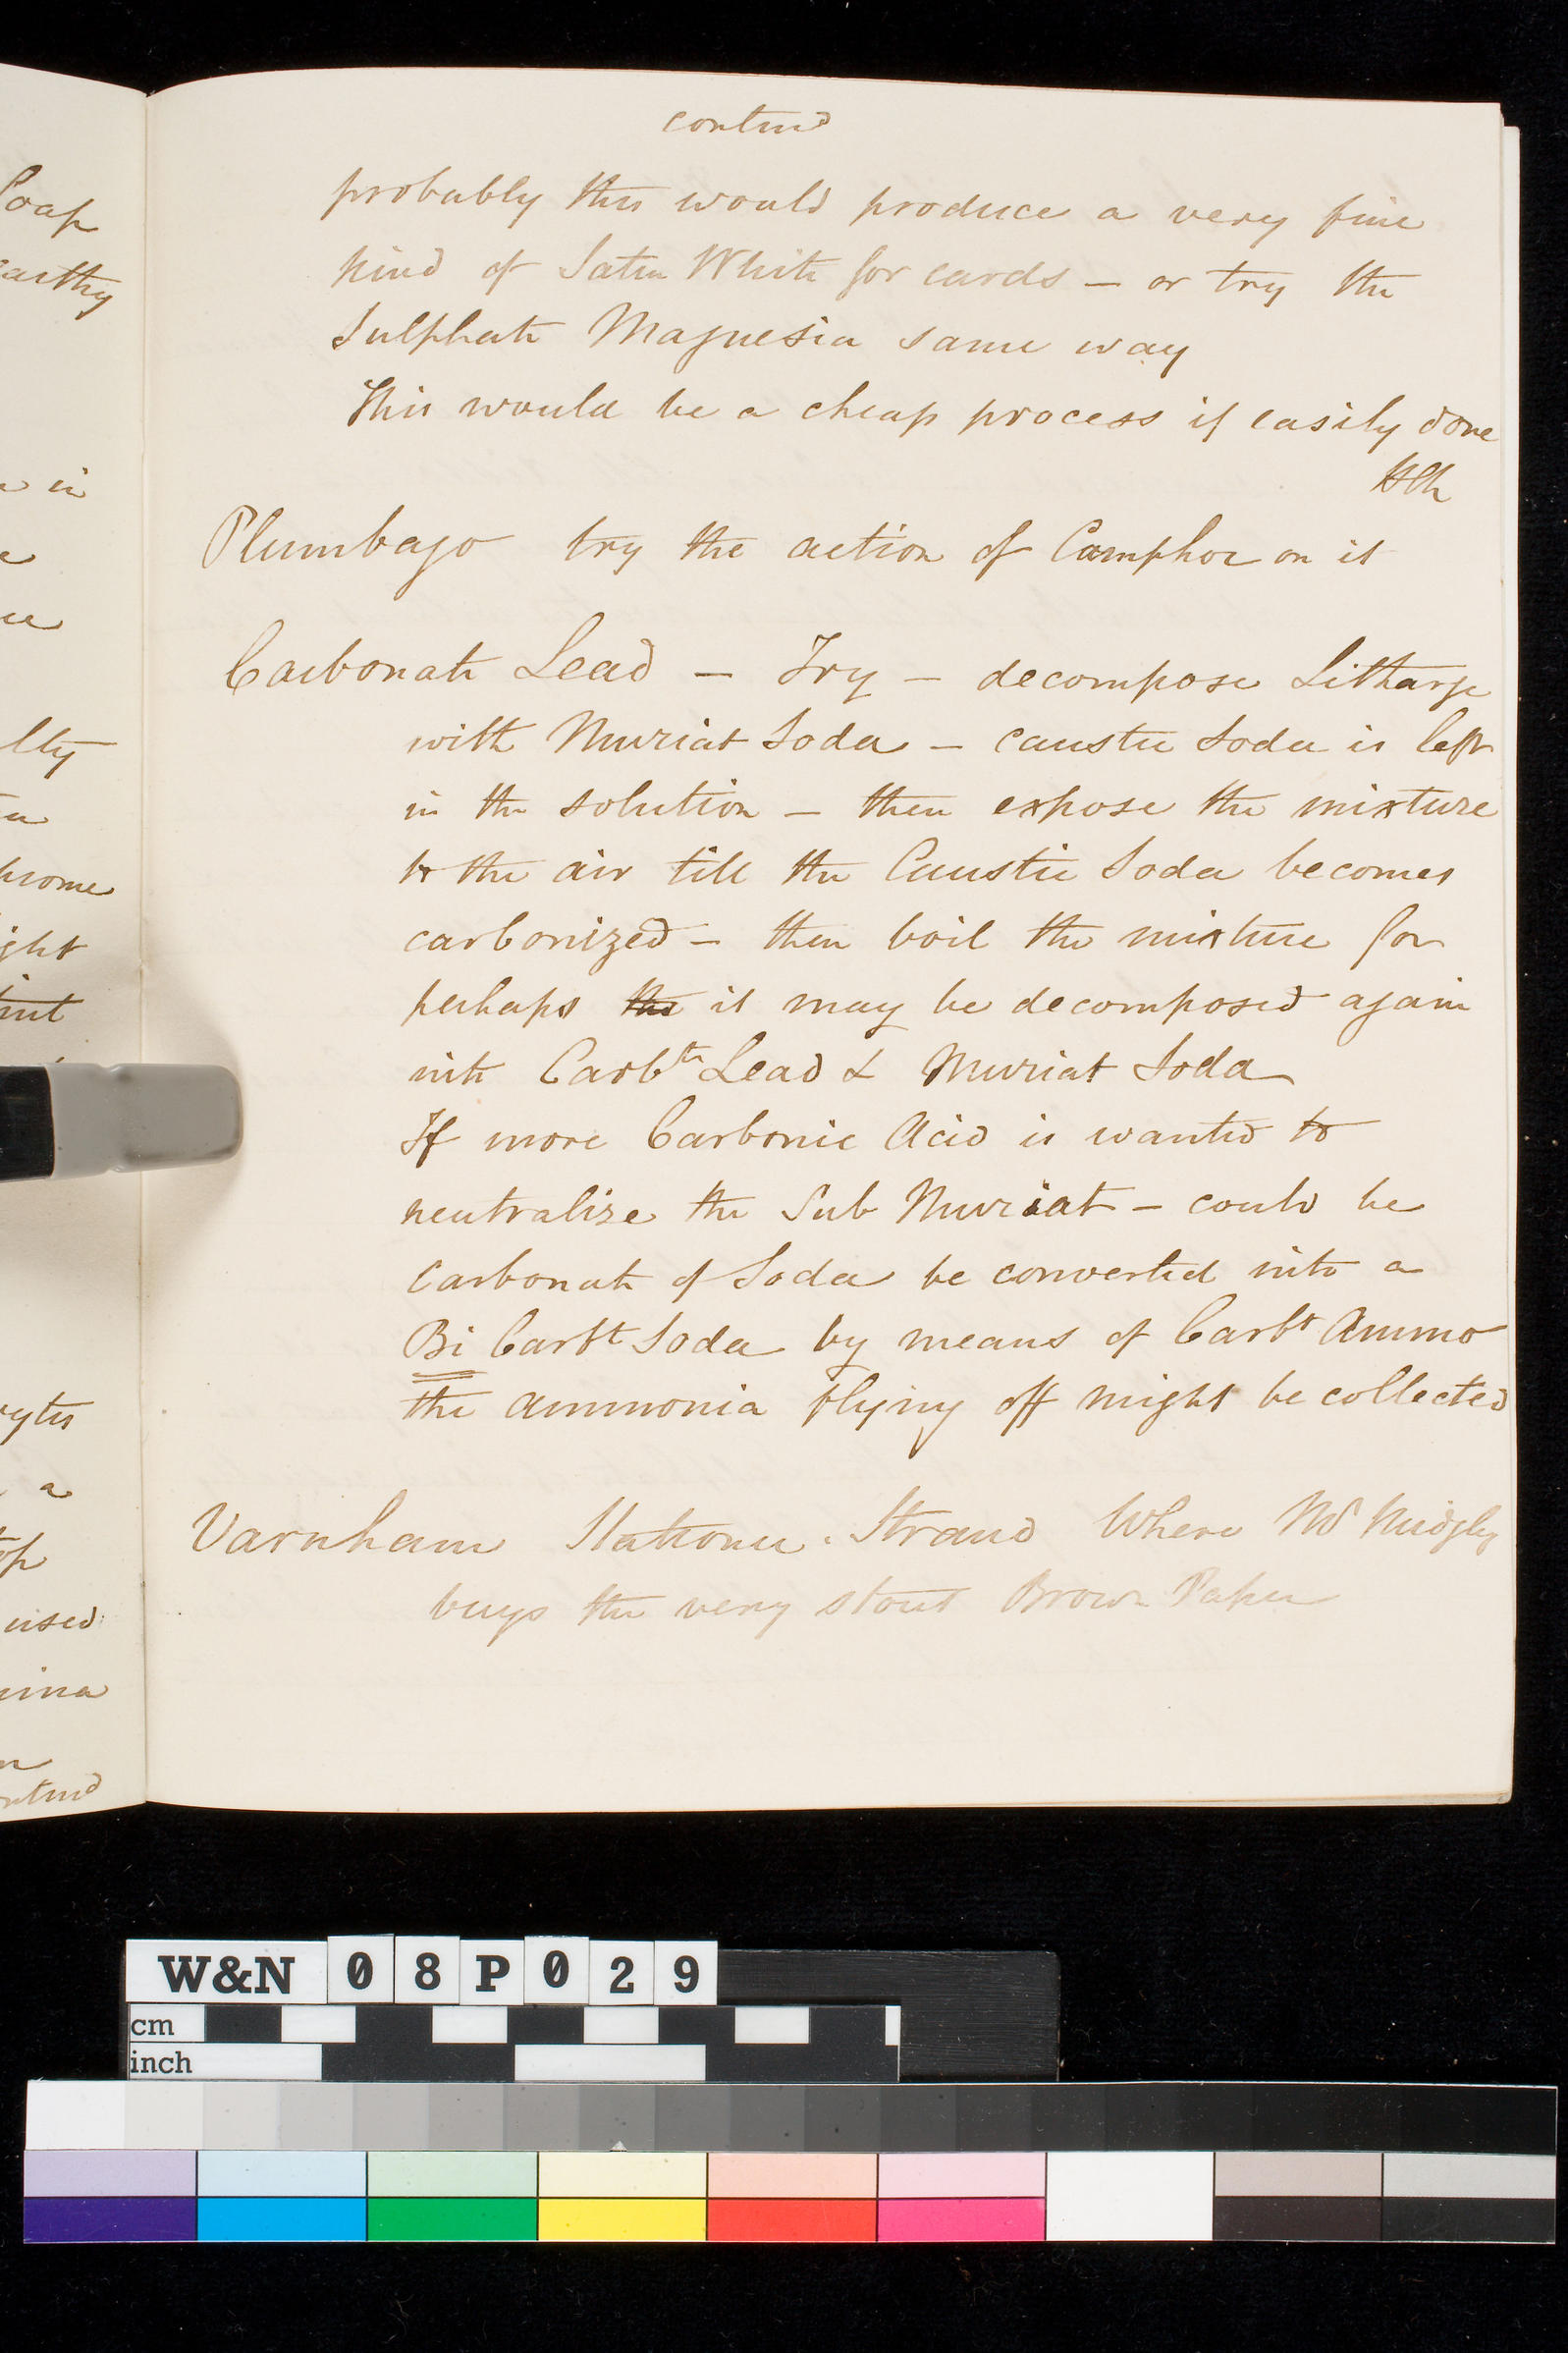 contind
probably this would produce a very fine
kind of Satin White for cards – or try the
Sulphate Magnesia same way
This would be a cheap process if easily done
Plumbago try the action of Camphor on it
Carbonate Lead – Try – decompose Litharge
with Muriat Soda – caustic Soda is left
in the solution – then expose the mixture
to the air till the Caustic Soda becomes
carbonized – then boil the mixture for
perhaps the it may be decomposed again
into Carbte Lead & Muriat Soda
If more Carbonic Acid is wanted to
neutralize the Sub Muriat – could be
Carbonate of Soda be converted into a
Bi Carbt Soda by means of Carbt Ammo
the ammonia flying off might be collected
Varnham Stationer. Strand Where Mr Midgly
buys the very stout Brown Paper
Soap
earthy
in
lty
ight
a
used
contind
W&N 08P029
cm
inch